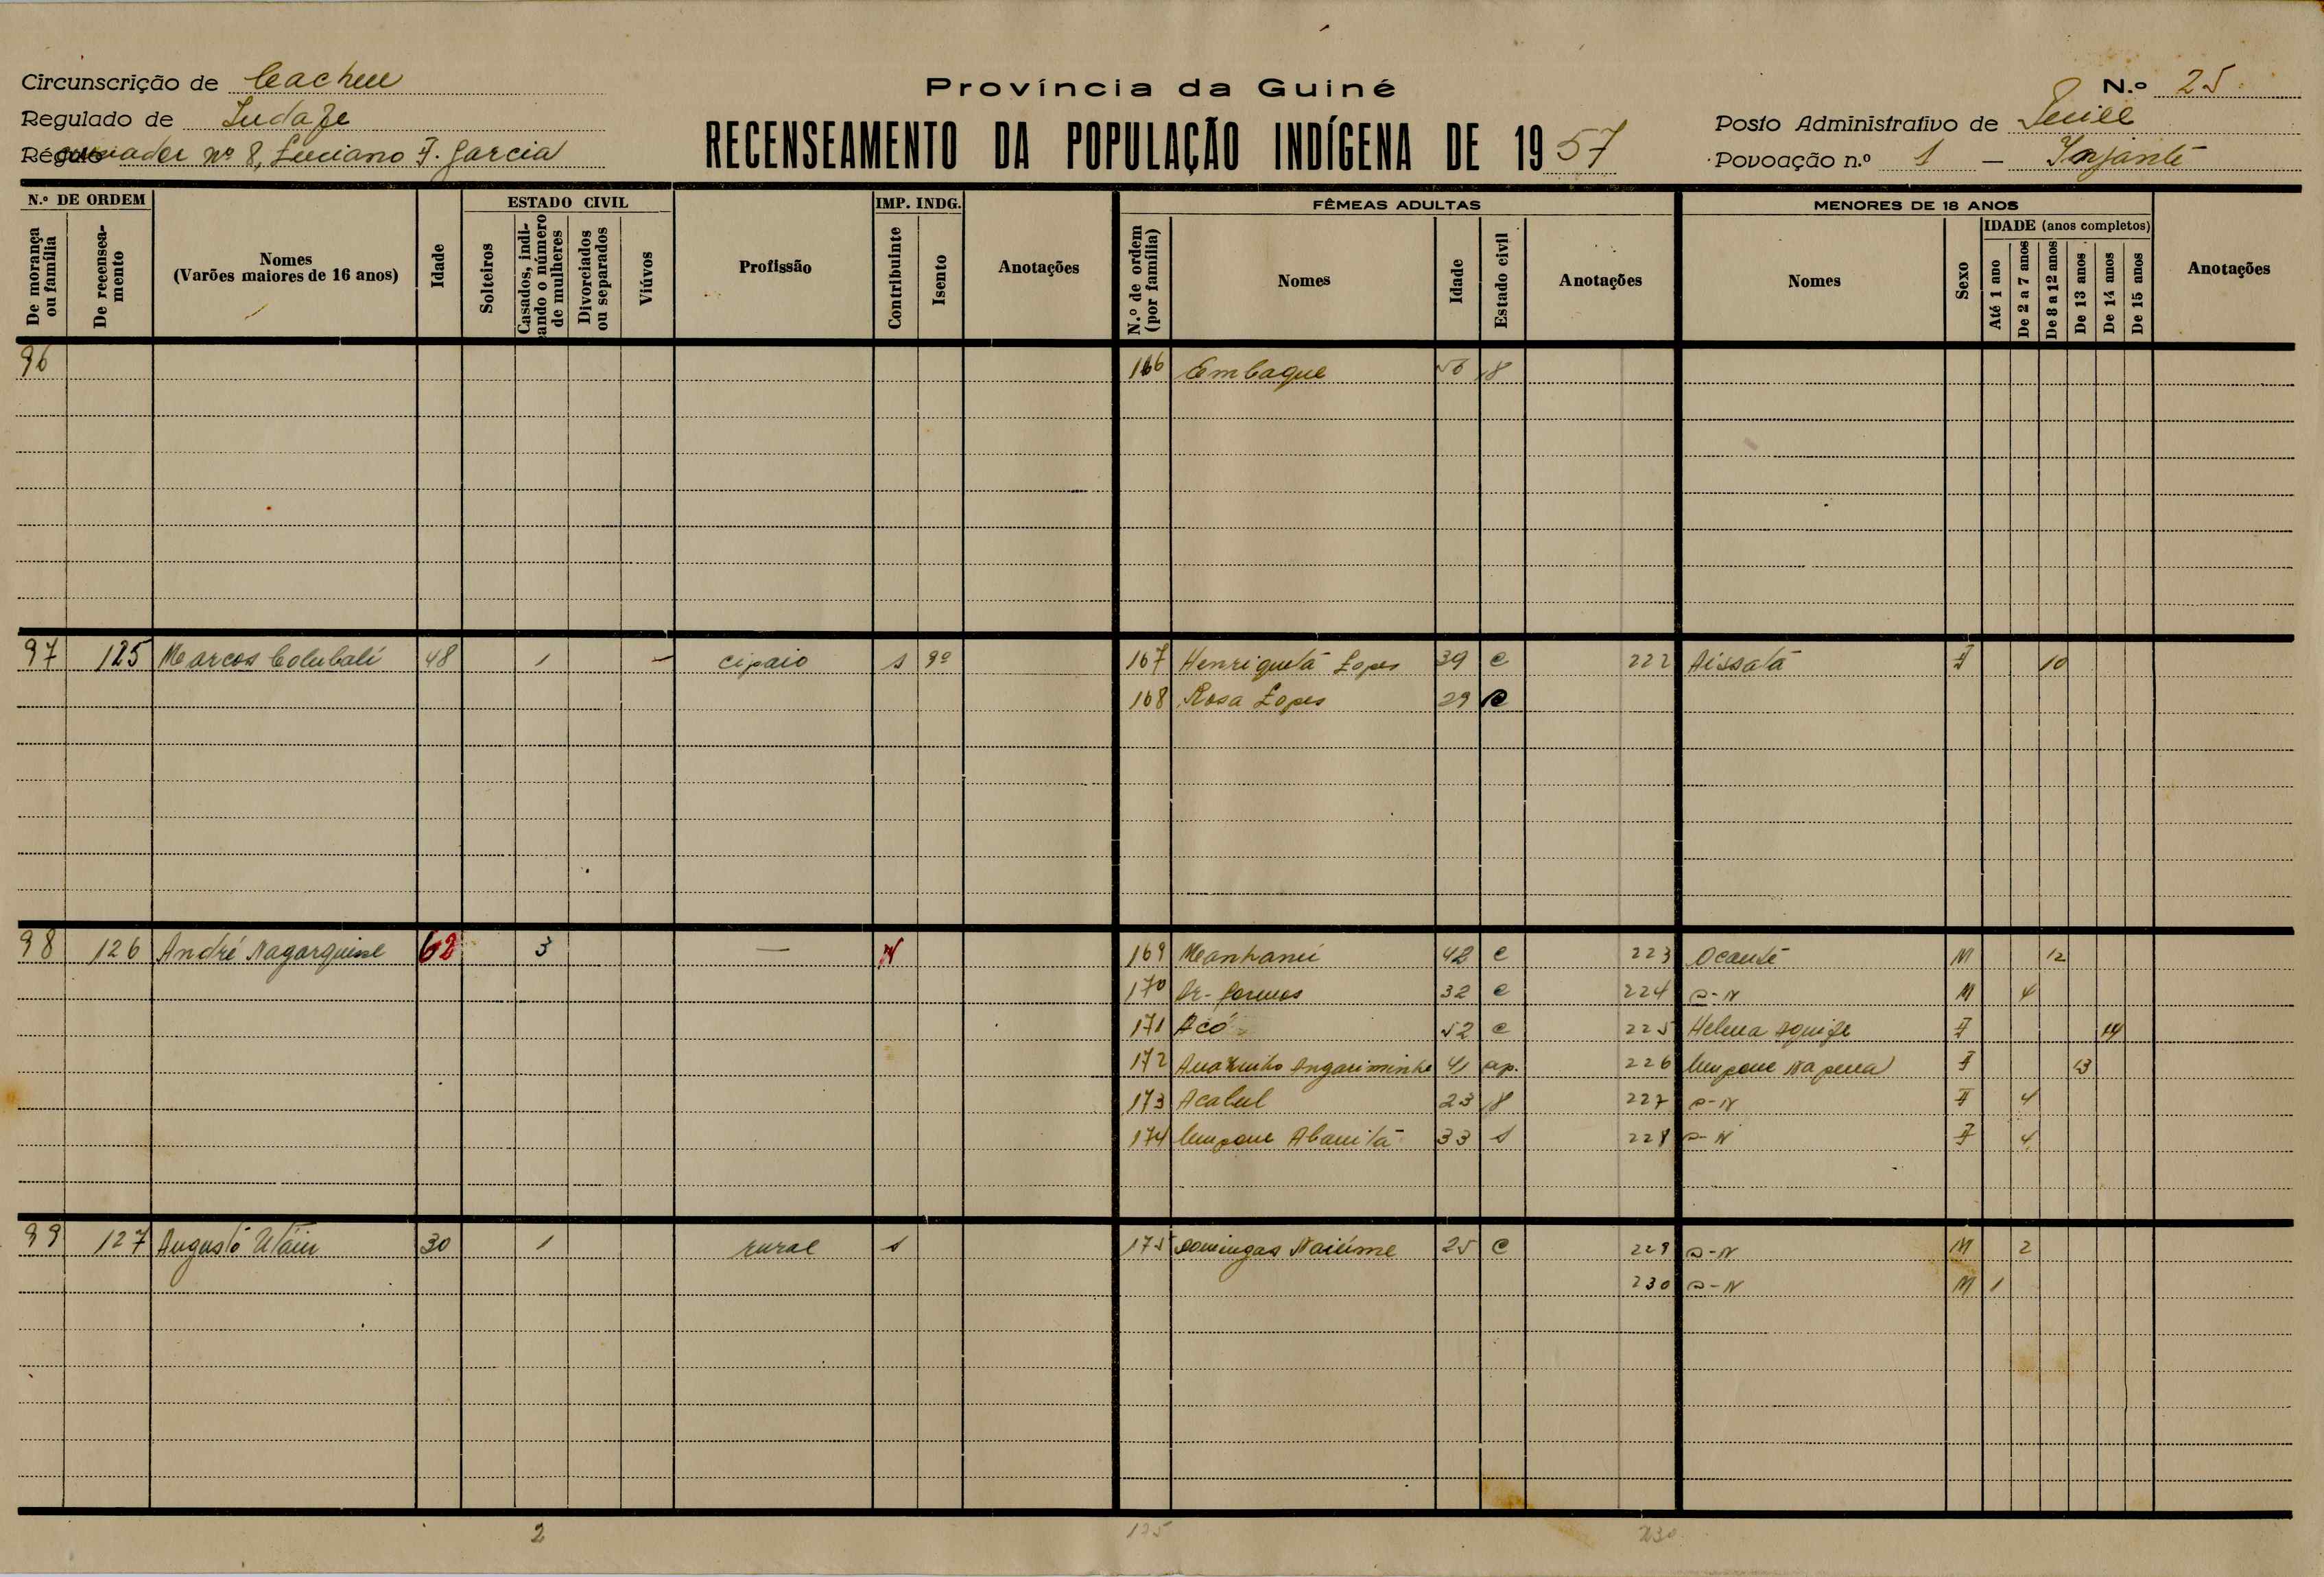 Circunscrição de Cacheu
Província da Guiné
N.º 25
Regulado de
Posto Administrativo de
RECENSEAMENTO DA POPULAÇÃO INDÍGENA DE 1957
Régulo nº 8, Luciano F. Garcia
Povoação n.º 1 — Injanté
N.º DE ORDEM
ESTADO CIVIL
IMP. INDG.
FÊMEAS ADULTAS
MENORES DE 18 ANOS
De morança ou família
De recenseamento
Nomes (Varões maiores de 16 anos)
Idade
Solteiros
Casados, indicando o número de mulheres
Divorciados ou separados
Viúvos
Profissão
Contribuinte
Isento
Anotações
N.º de ordem (por família)
Nomes
Idade
Estado civil
Anotações
Nomes
Sexo
IDADE (anos completos)
Até 1 ano
De 2 a 7 anos
De 8 a 12 anos
De 13 anos
De 14 anos
De 15 anos
Anotações
96 166 Embaque
97 125 Marcos Colubali 48 1 cipaio s 9º 167 Henriquetá Lopes 39 c 222 Aissatá F 10
168 Rosa Lopes 29 c
98 126 André 62 3 — N 169 42 c 223 Ocanté M 12
170 32 c 224 S-N M 4
171 Acó 52 c 225 Helena F 14
172 41 226 F 13
173 Acalul 23 227 S-N F 4
174 33 s 228 S-N F 4
99 127 Augusto 30 1 rural s 175 Domingas 25 c 229 S-N M 2
230 S-N M 1
2 175 230